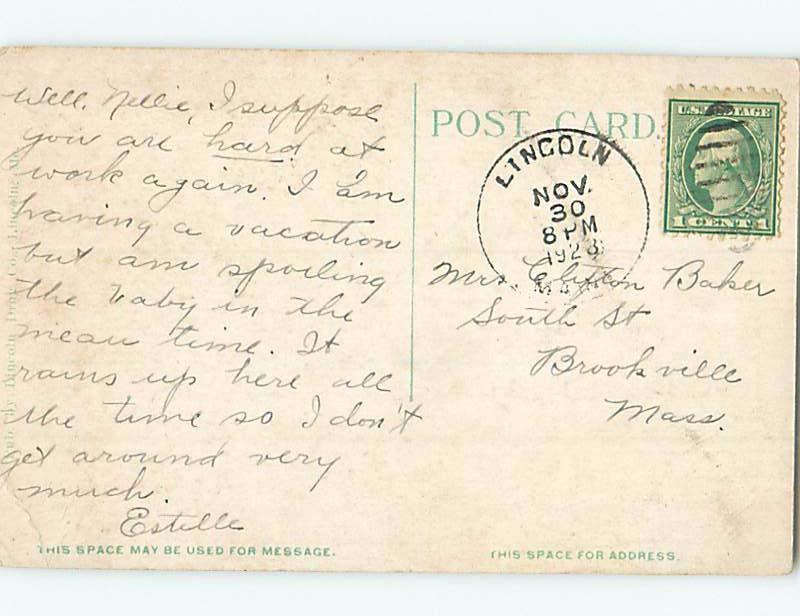 Well, Nellie, I suppose
you are hard at
work again. I am
having a vacation
but am spoiling
the baby in the
mean time. It
rains up here all
the time so I don't
get around very
much.
Estelle
THIS SPACE MAY BE USED FOR MESSAGE.
POST CARD.
U.S. POSTAGE
1 CENT 1
LINCOLN
NOV.
30
8 PM
1928
Mrs Clifton Baker
South St
Brookville
Mass.
THIS SPACE FOR ADDRESS.